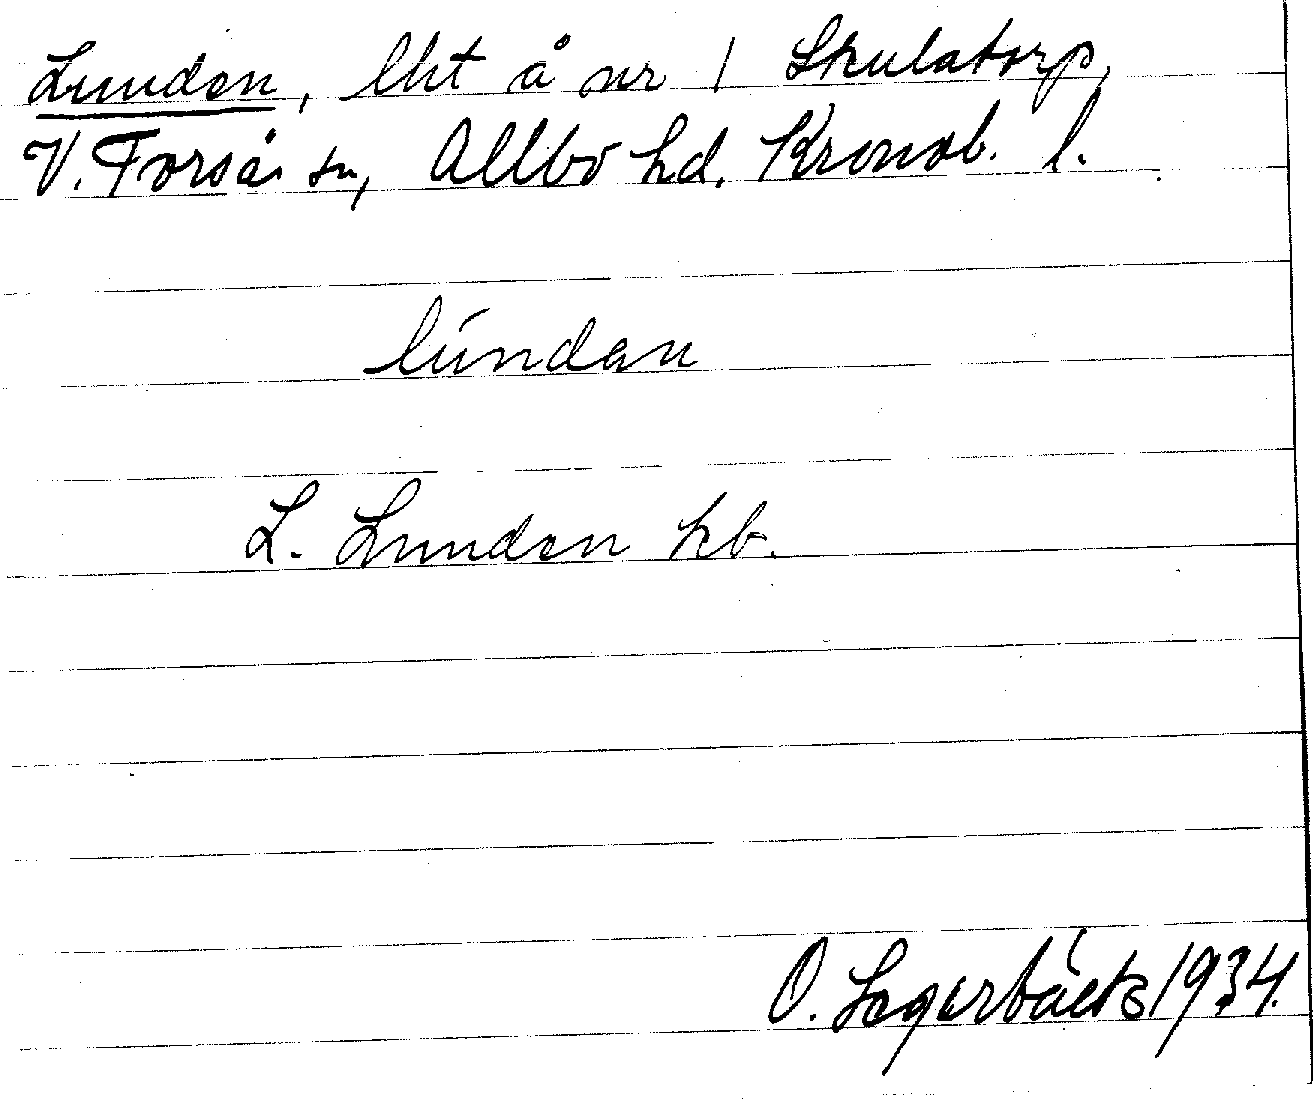 Lunden, lht å nr 1 Skulatorp,
V. Torsås sn, Allbo hd. Kronob. l.
lúndan
L. Lunden kb.
O. 1934.